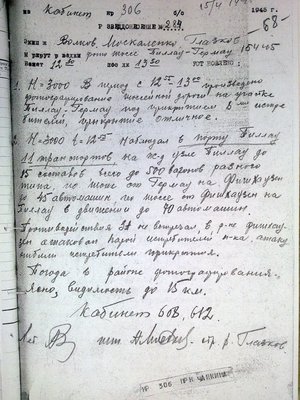 15/4 1945
из Кабинет нр 306 с/с 1945 г.
Р ЗВЕДДОНЕСЕНИЕ № 284
-68-
Экип ж Волков, Москаленко Глазков
М ршрут и задача фото шоссе Пиллау-Гермау 15/4.45
Взлет 12.40 пос дка 13.50
1. Н=3000 В период с 12.55-13.00 произведено
фотографирование шоссейной дороги на участке
Пиллау-Гермау под прикрытием 8ми истре
бителей, прикрытие отличное.
2. Н=3000 t=12.55 Наблюдал в порту Пиллау
11 транспортов на ж.д узле Пиллау до
15 составов всего до 500 вагонов разного
типа, по шоссе от Гермау на Фишхаузен
до 45 автомашин, по шоссе от Фишхаузен на
Пиллау в движении до 40 автомашин.
Противодействия ЗА не встречал, в р-не Фишхау-
зен атакован парой истребителей п-ка, атаку
отбили истребители прикрытия.
Погода в районе фотографирования-
Ясно, видимость до 15 км.
Кабинет 608, 612.
Лет. шт. стр. р. Глазков
НР 306